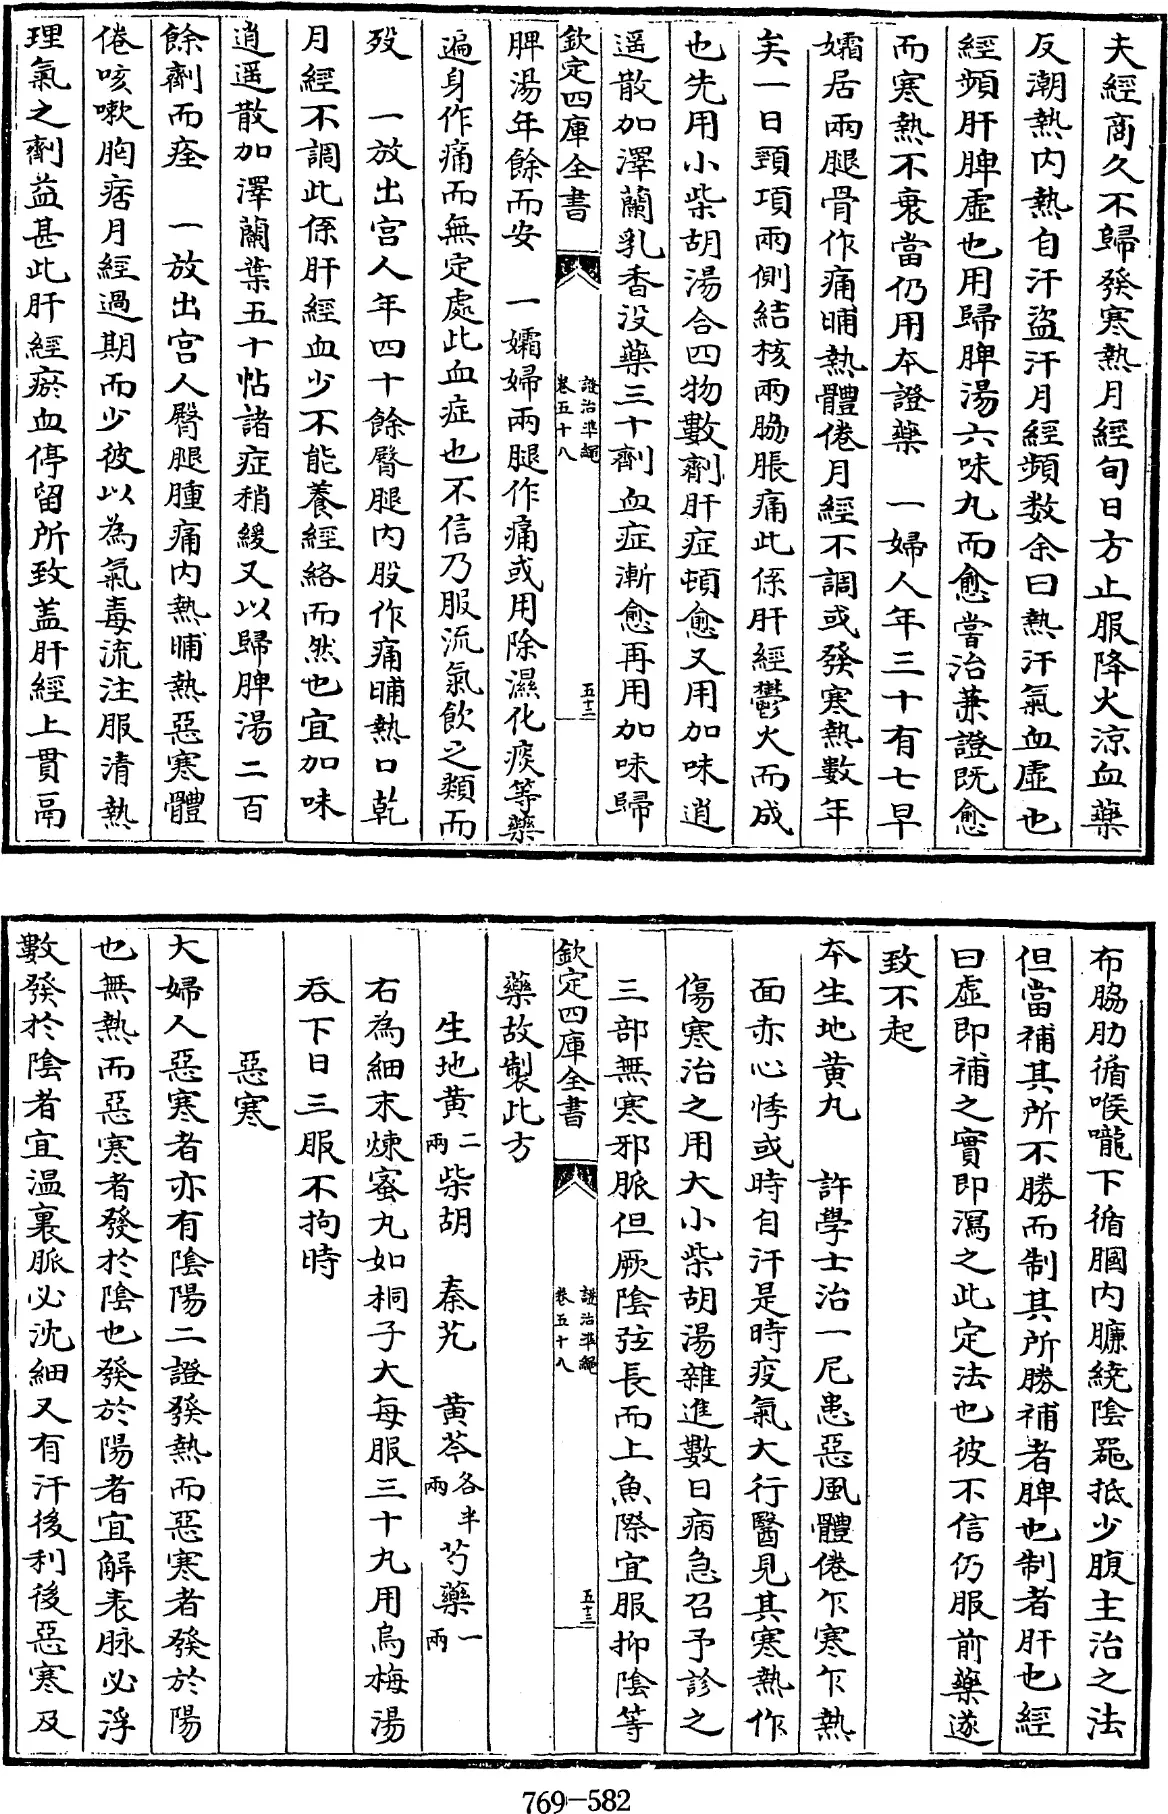 夫經商久不歸發寒熱月經旬日方止服降火涼血藥
反潮熱内熱自汗盜汗月經頻數余曰熱汗氣血虛也
經頻肝脾虛也用歸脾湯六味丸而愈嘗治兼證既愈
而寒熱不衰當仍用本證藥　一婦人年三十有七早
孀居兩腿骨作痛晡熱體倦月經不調或發寒熱數年
矣一日頸項兩側結核兩脇脹痛此係肝經鬱火而成
也先用小柴胡湯合四物數劑肝症頓愈又用加味逍
遥散加澤蘭乳香没藥三十劑血症漸愈再用加味歸
欽定四庫全書
證治準繩
卷五十八
五十二
脾湯年餘而安　一孀婦兩腿作痛或用除濕化痰等藥
遍身作痛而無定處此血症也不信乃服流氣飲之類而
殁　一放出宫人年四十餘臀腿内股作痛晡熱口乾
月經不調此係肝經血少不能養經絡而然也宜加味
逍遥散加澤蘭葉五十帖諸症稍緩又以歸脾湯二百
餘劑而痊　一放出宫人臀腿腫痛内熱晡熱惡寒體
倦咳嗽胸痞月經過期而少彼以為氣毒流注服清熱
理氣之劑益甚此肝經瘀血停留所致盖肝經上貫鬲
布脇肋循喉嚨下循膕内臁繞陰噐抵少腹主治之法
但當補其所不勝而制其所勝補者脾也制者肝也經
曰虛即補之實即瀉之此定法也彼不信仍服前藥遂
致不起
本生地黄丸　許學士治一尼患惡風體倦乍寒乍熱
面赤心悸或時自汗是時疫氣大行醫見其寒熱作
傷寒治之用大小柴胡湯雜進數日病急召予診之
三部無寒邪脈但厥陰弦長而上魚際宜服抑陰等
欽定四庫全書
證治準繩
卷五十八
五十三
藥故製此方
生地黄二兩　柴胡　秦艽　黄芩各半兩　芍藥一兩
右為細末煉蜜丸如桐子大每服三十丸用烏梅湯
呑下日三服不拘時
惡寒
大婦人惡寒者亦有陰陽二證發熱而惡寒者發於陽
也無熱而惡寒者發於陰也發於陽者宜解表脉必浮
數發於陰者宜温裏脈必沈細又有汗後利後惡寒及
769-582